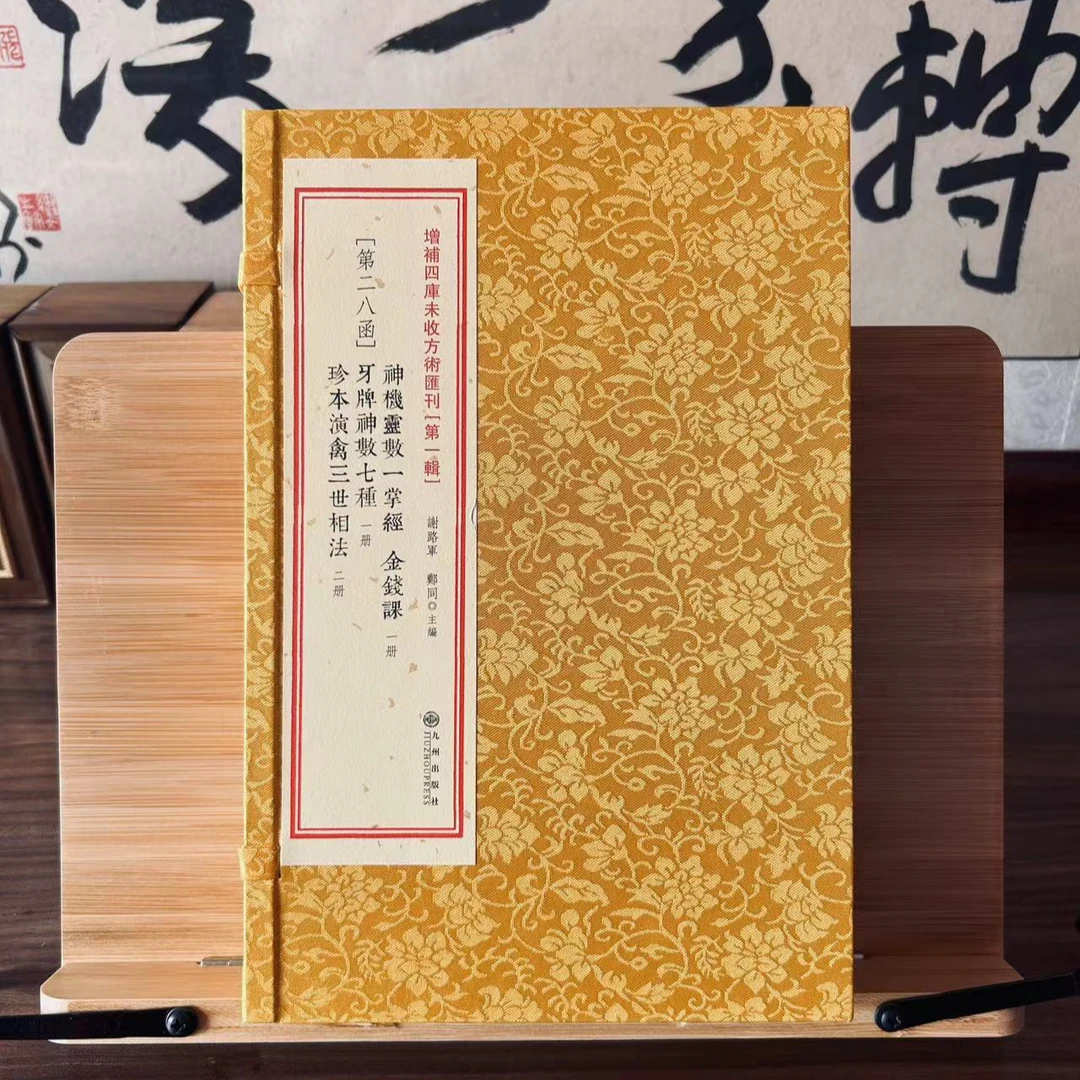 增補四庫未收方術匯刊[第一輯]
謝路軍 鄭同○主編
九州出版社
JIUZHOUPRESS
[第二八函]
神機靈數一掌經 金錢課 一册
牙牌神數七種 一册
珍本演禽三世相法 二册
轉